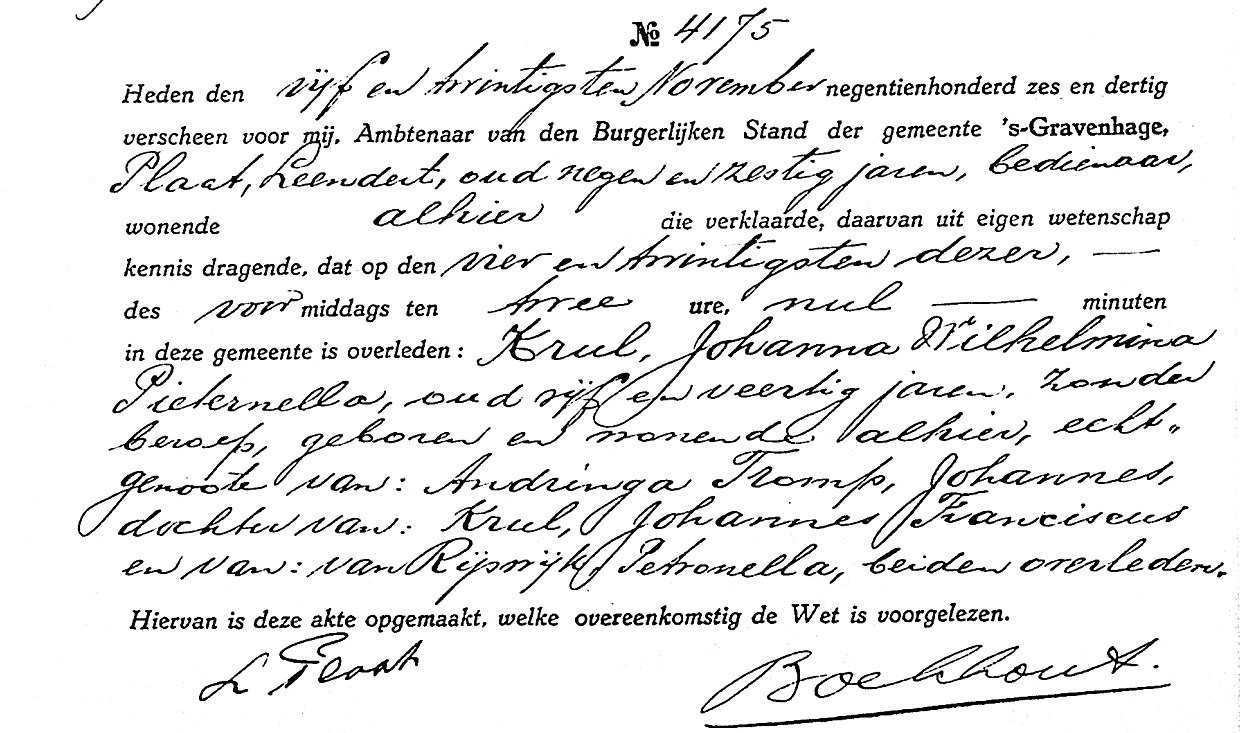 № 4175
Heden den vijf en twintigsten November negentienhonderd zes en dertig
verscheen voor mij, Ambtenaar van den Burgerlijken Stand der gemeente 's-Gravenhage,
Plaat, Leendert, oud negen en zestig jaren, bedienaar,
wonende alhier die verklaarde, daarvan uit eigen wetenschap
kennis dragende, dat op den vier en twintigsten dezer, —
des voor middags ten twee ure, nul — minuten
in deze gemeente is overleden: Krul, Johanna Wilhelmina
Pieternella, oud vijf en veertig jaren, zonder
beroep, geboren en wonende alhier, echt„
genoote van: Andringa Tromp, Johannes,
dochter van: Krul, Johannes Franciscus
en van: van Rijswijk, Petronella, beiden overleden.
Hiervan is deze akte opgemaakt, welke overeenkomstig de Wet is voorgelezen.
L Plaat Boekhout.